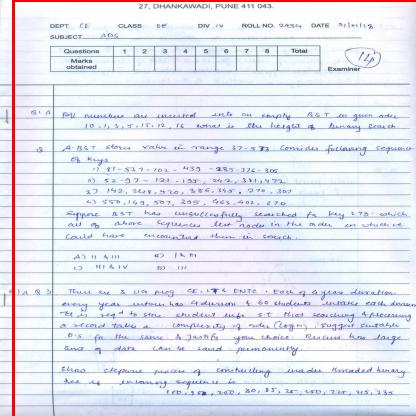 27, DHANKAWADI, PUNE 411 043.
DEPT. CE CLASS SE DIV IV ROLL NO. 2434 DATE
SUBJECT ADS
Questions 1 2 3 4 5 6 7 8 Total
Marks obtained
Examiner
Q1 A numbers are inserted into an empty BST in given order
10, 1, 3, 5, 15, 12, 16 what is the height of binary search
A BST stores value in range 37-573 Consider following sequence
of keys
1) 81-537-102-439-285-376-305
2) 52-97-121-195-242-381-472
3) 142, 248, 520, 386, 345, 270, 307
4) 550, 149, 507, 395, 463, 402, 270
Suppose BST has unsuccessfully searched for key 273. which
all of above sequences list nodes in the order in which we
could have encountered them in search.
A) II & III B) I & III
C) III & IV D) III
Q1 A There are 3 UG prog CE, ENTC. Each of 4 year duration.
every year has 4 division & 60 students intakes each division
It is reqd to store student info S.T that searching & processing
a record takes a complexity of order (log n). suggest suitable
D.S for the same & justify your choice. how large
amt of data can be saved permanently.
Show stepwise process of constructing threaded binary
tree if incoming sequence is